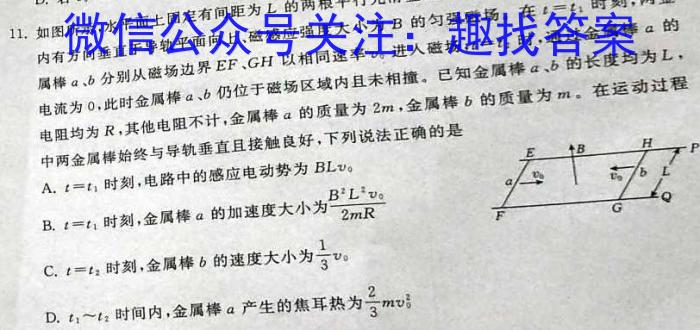 11. 如图所示,水平面上固定有间距为 L 的两根平行光滑
内有方向垂直于导轨平面向上、磁感应强度大小为 B 的匀强磁场。在 t=t₁ 时刻,两金
微信公众号关注:趣找答案
属棒 a、b 分别从磁场边界 EF、GH 以相同速率 v₀ 进入磁场, 时刻,通过金属棒 a 的
电流为 0,此时金属棒 a、b 仍位于磁场区域内且未相撞。已知金属棒 a、b 的长度均为 L,
电阻均为 R,其他电阻不计,金属棒 a 的质量为 2m,金属棒 b 的质量为 m。在运动过程
中两金属棒始终与导轨垂直且接触良好,下列说法正确的是
A. t=t₁ 时刻,电路中的感应电动势为 BLv₀
B. t=t₁ 时刻,金属棒 a 的加速度大小为 B²L²v₀/2mR
C. t=t₂ 时刻,金属棒 b 的速度大小为 1/3 v₀
D. t₁~t₂ 时间内,金属棒 a 产生的焦耳热为 2/3 mv₀²
E B H P
a v₀ v₀ b L
F G Q